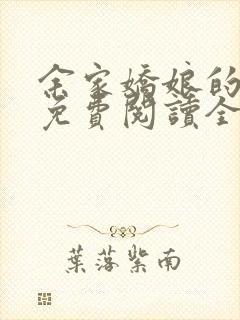 余家嬌娘的
免費閱讀全
葉落紫南